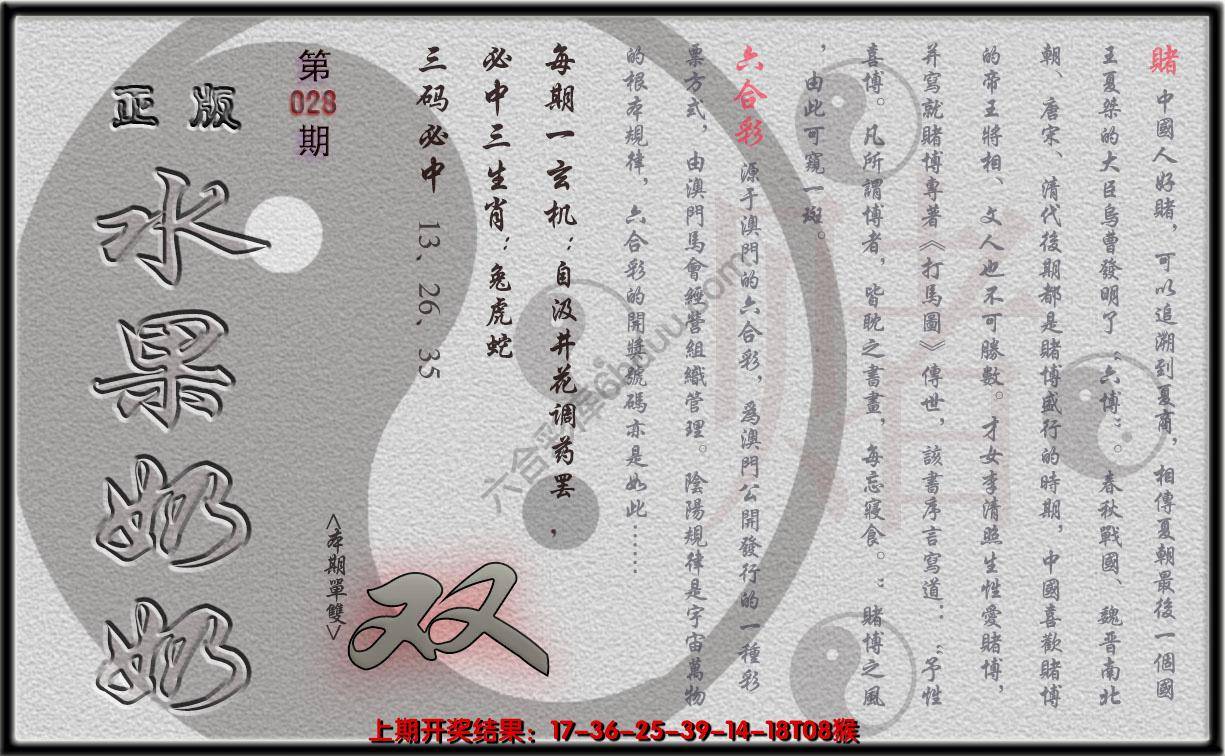 賭 中國人好賭，可以追溯到夏商，相傳夏朝最後一個國
王夏桀的大臣烏曹發明了“六博”。春秋戰國、魏晋南北
朝、唐宋、清代後期都是賭博盛行的時期，中國喜歡賭博
的帝王將相、文人也不可勝數。才女李清照生性愛賭博，
并寫就賭博專著《打馬圖》傳世，該書序言寫道：“予性
喜博。凡所謂博者，皆耽之書畫，每忘寢食。”賭博之風
，由此可窺一斑。
六合彩 源于澳門的六合彩，爲澳門公開發行的一種彩
票方式，由澳門馬會經營組織管理。陰陽規律是宇宙萬物
的根本規律，六合彩的開獎號碼亦是如此……
每期一玄机：自汲井花调药罢，
必中三生肖：兔虎蛇
三码必中 13、26、35
第028期
<本期單雙>
双
正版
水果奶奶
六合彩库6huuu.com
上期开奖结果：17-36-25-39-14-18T08猴